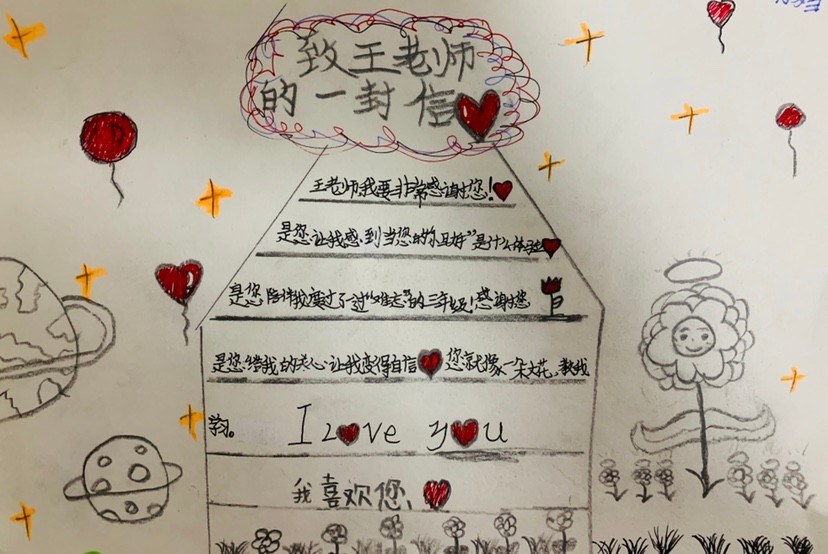 致王老师
的一封信
王老师我要非常感谢您!
是您让我感到当您的"小助手"是什么体验
是您陪伴我度过了一过"难忘"的三年级!感谢您
是您给我的关心让我变得自信 您就像一朵大花,教我
学习。
I Love you
我喜欢您,